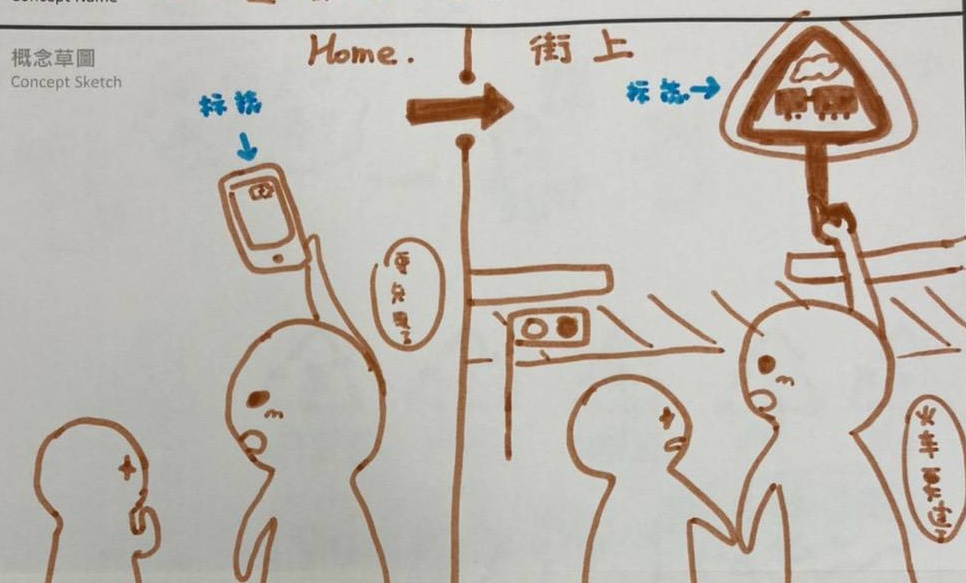 Concept Name
概念草圖
Concept Sketch
Home.
街上
标誌
标誌
要充電了
火车要过了